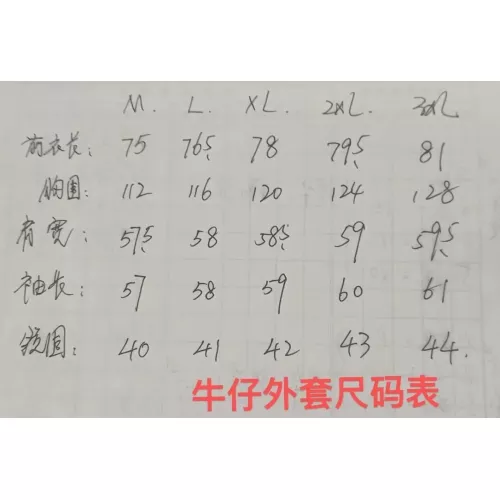 M. L. XL. 2XL. 3XL
前衣长: 75 76.5 78 79.5 81
胸围: 112 116 120 124 128
肩宽: 57.5 58 58.5 59 59.5
袖长: 57 58 59 60 61
领围: 40 41 42 43 44.
牛仔外套尺码表